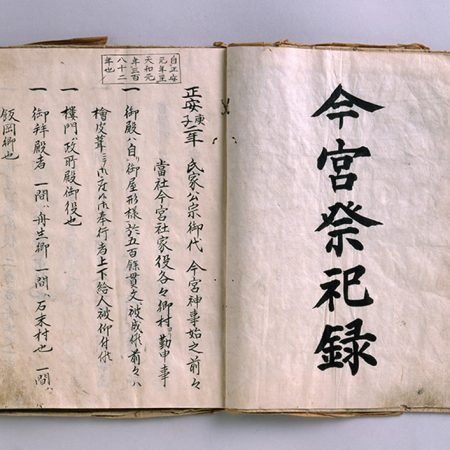 今宮祭祀録
自正安
元年至
天和元
年三百
八十二
年也
正安二年 庚子 氏家公宗御代 今宮神事始之前々
當社今宮社家役各々郷村 勤申事
一 御殿ハ自御屋形様於五百餘貫文被成候前々ハ
檜皮葺 奉行者上下給人被仰付候
一 樓門ハ政所殿御役也
一 御拝殿者 一間ハ舟生郷 一間ハ石末村也 一間ハ
飯岡郷也